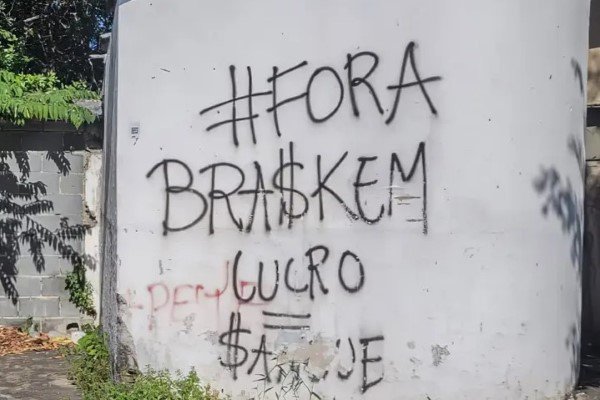 #FORA
BRA$KEM
LUCRO
=
$ANGUE